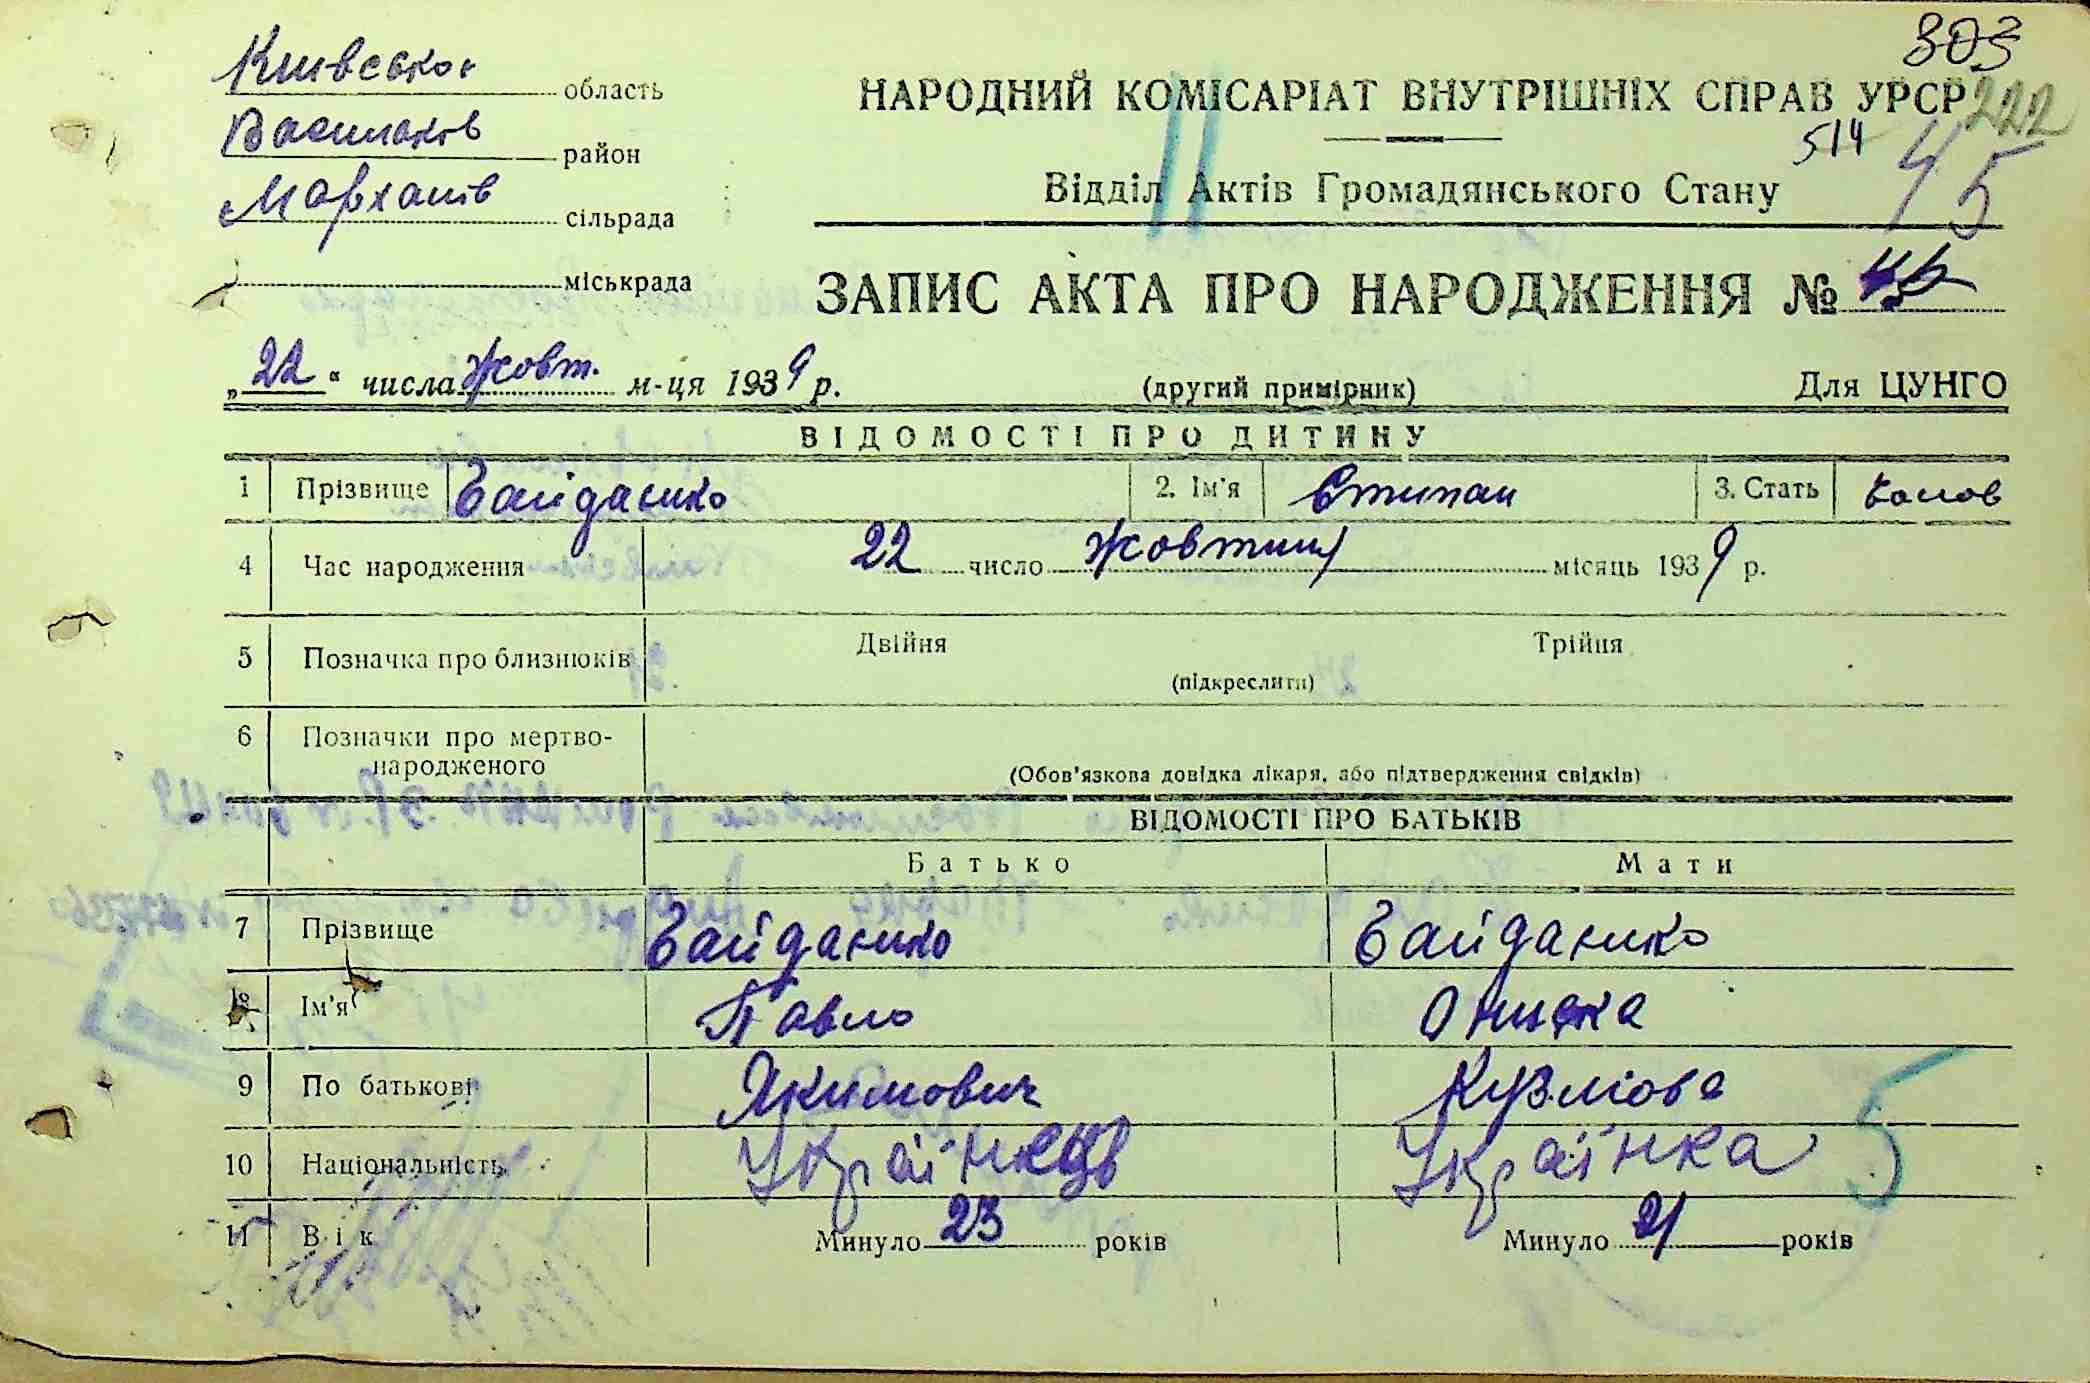 803
Київсько область
НАРОДНИЙ КОМІСАРІАТ ВНУТРІШНІХ СПРАВ УРСР 222
Васильків район
514 45
Мархалів сільрада
Відділ Актів Громадянського Стану
11
міськрада
ЗАПИС АКТА ПРО НАРОДЖЕННЯ №
„22“ числа Жовт. м-ця 1939 р.
(другий примірник)
Для ЦУНГО
ВІДОМОСТІ ПРО ДИТИНУ
1 Прізвище Гайданко 2. Ім'я Степан 3. Стать
4 Час народження 22 число Жовтня місяць 1939 р.
5 Позначка про близнюків Двійня Трійня
(підкреслити)
6 Позначки про мертво-
народженого
(Обов'язкова довідка лікаря, або підтвердження свідків)
ВІДОМОСТІ ПРО БАТЬКІВ
Батько Мати
7 Прізвище Гайданко Гайданко
8 Ім'я Павло Ониска
9 По батькові Якимович Кузмова
10 Національність Українець Українка 5
11 Вік Минуло 23 років Минуло 21 років